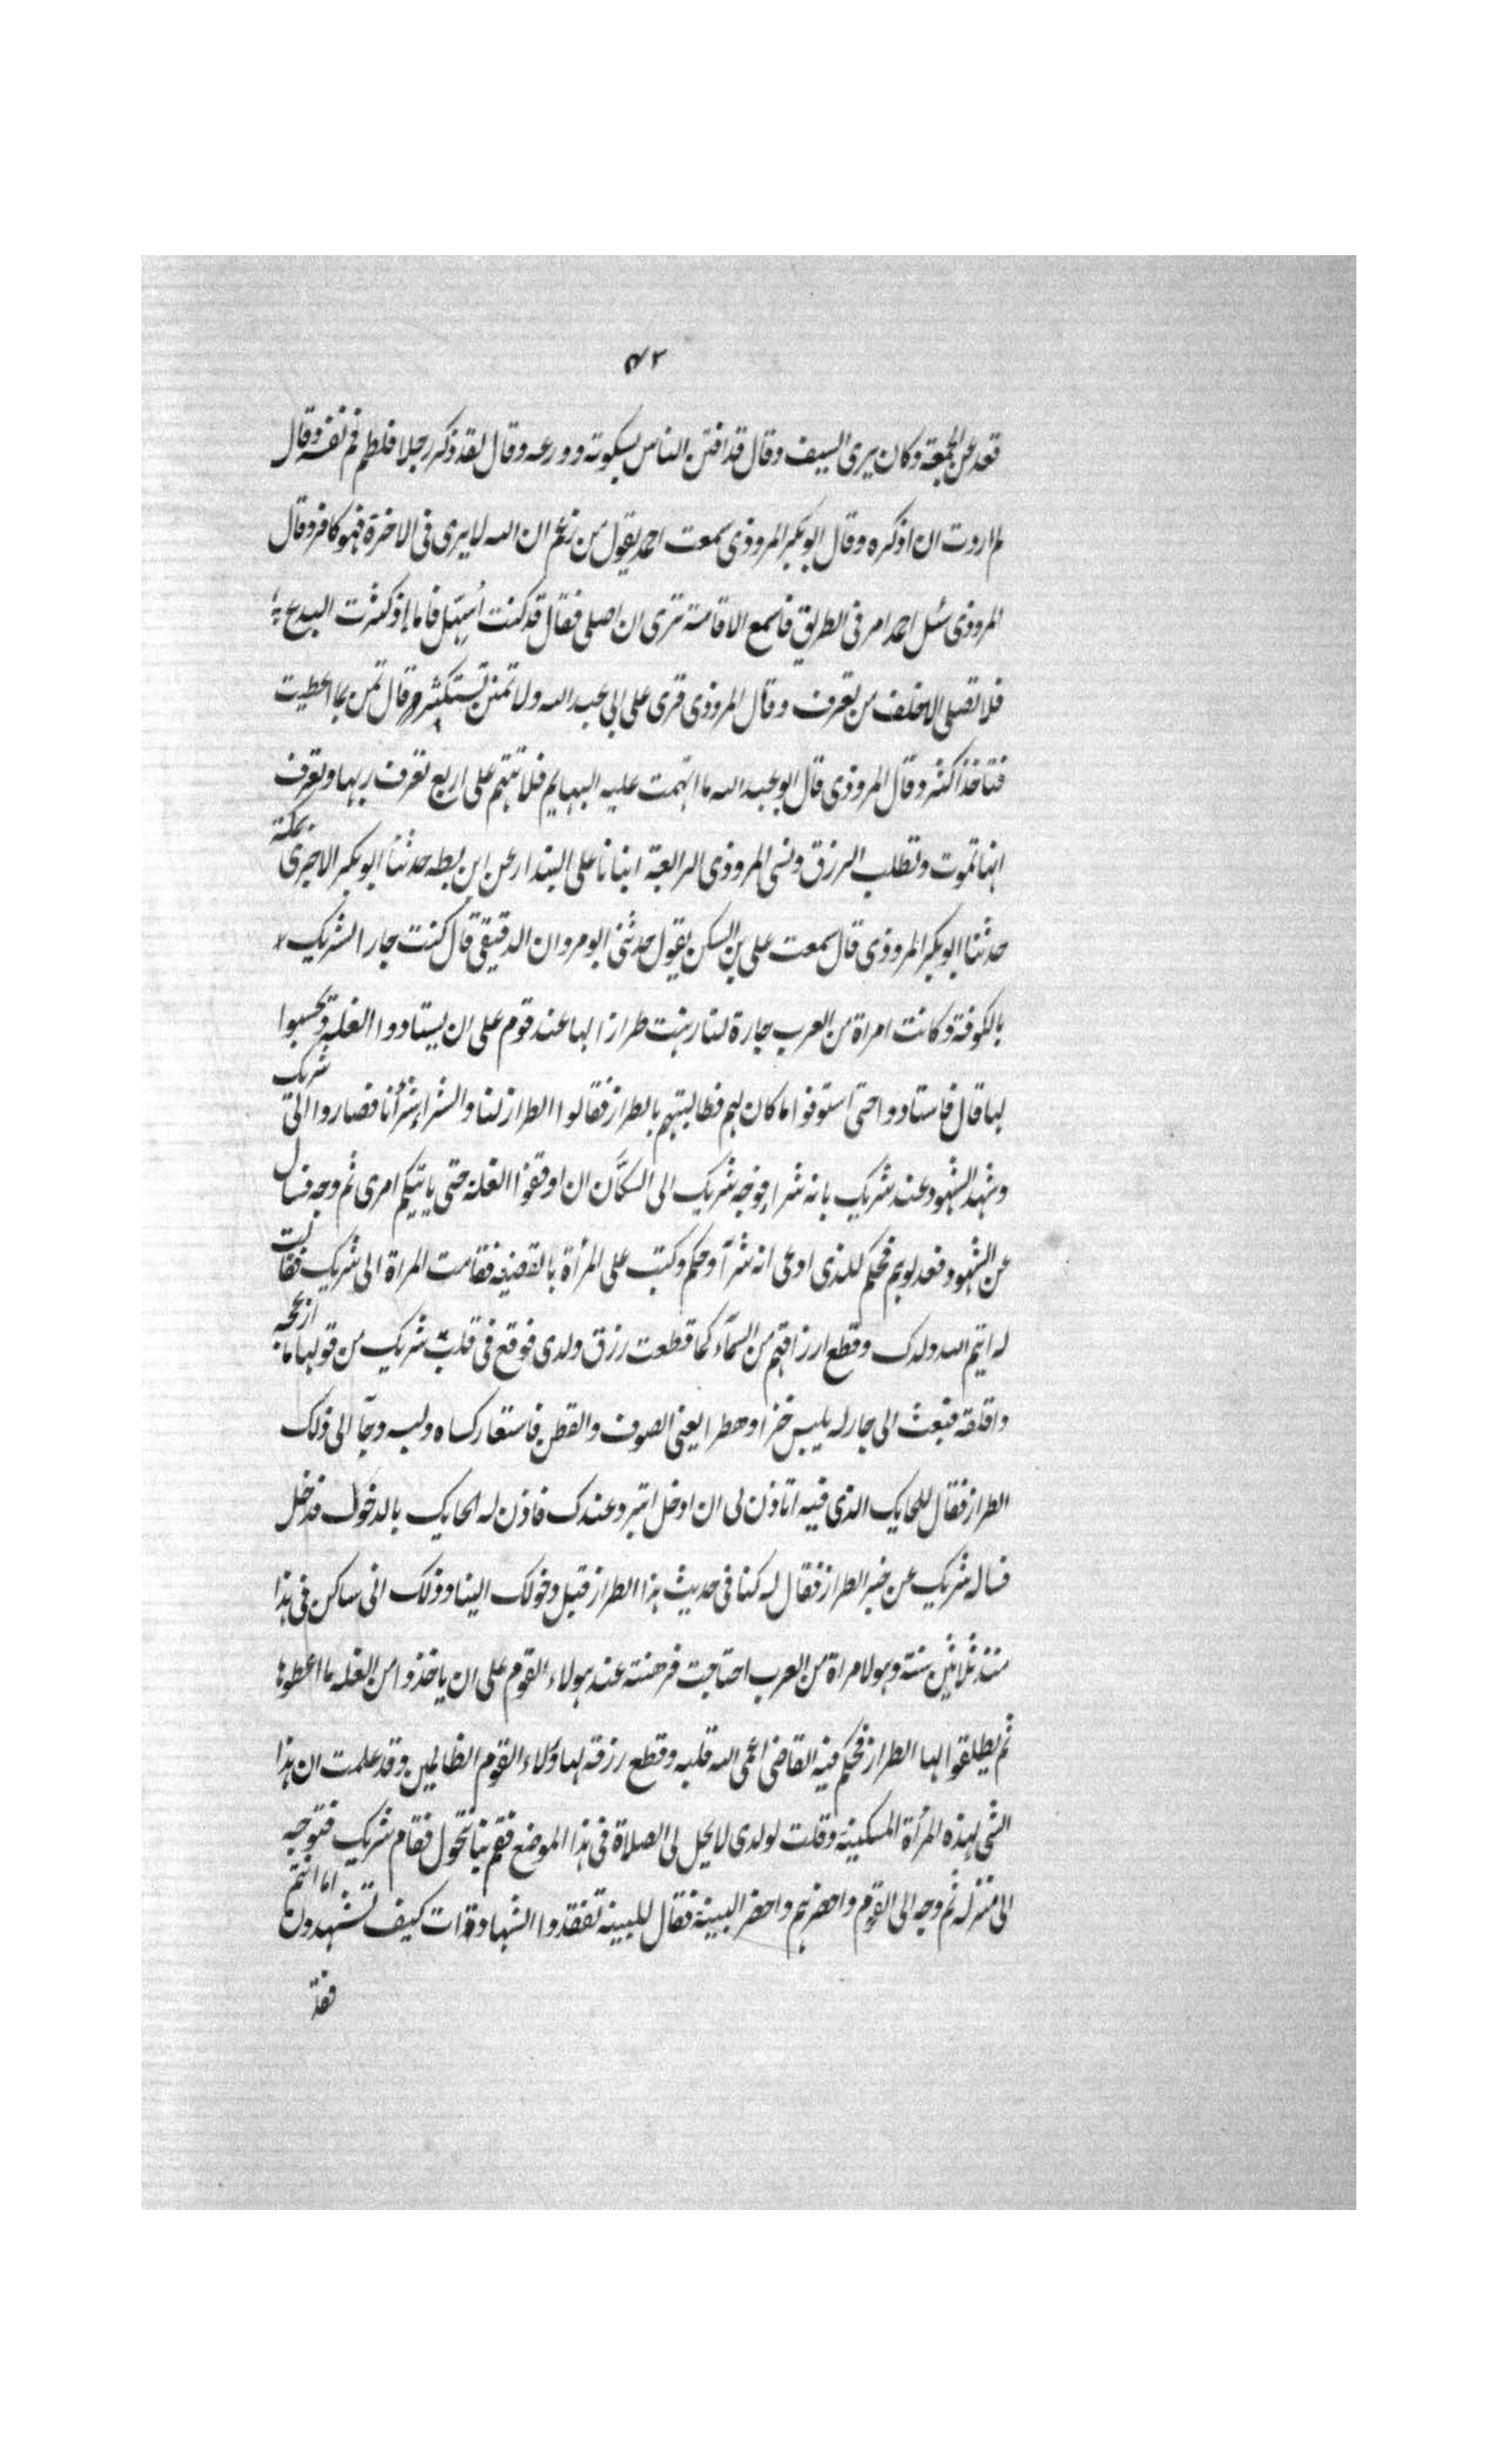 ٤٢
قعد عن الجمعة وكان يرى السيف وقال قد افتتن الناس بسكوته وورعه وقال لقد ذكر رجلا فلطم فم نفسه وقال
لم اردت ان اذكره وقال ابو بكر المروذي سمعت احمد يقول من زعم ان الله لا يرى في الاخرة فهو كافر وقال
المروذي سئل احمد امر في الطريق فاسمع الاقامة ترى ان اصلي فقال قد كنت اسهل فاما إذ كثرت البدع
فلا تصلي الا خلف من تعرف وقال المروذي قرئ على ابي عبد الله ولا تمنن تستكثر قال تمن بما اعطيت
فتاخذ اكثر وقال المروذي قال ابو عبد الله ما ابهمت عليه البهايم فلا تبهم على اربع تعرف ربها وتعرف
انها تموت وتطلب الرزق ونسى المروذي الرابعة انبانا على البندار عن ابن بطه حدثنا ابو بكر الاجرى بمكة
حدثنا ابو بكر المروذي قال سمعت على بن السكن يقول حدثني ابو مروان الدقيقي قال كنت جارا لشريك
بالكوفة وكانت امراة من العرب جارة لنا رهنت طرازا لها عند قوم على ان يستادوا الغلة وتحسبوا
لها قال فاستادوا حتى استوفوا ما كان لهم فطالبتهم بالطراز فقالوا الطراز لنا والشراء شرأنا فصاروا الى شريك
وشهد الشهود عند شريك بانه شراء فوجه شريك الى السكان ان اوقفوا الغلة حتى ياتيكم امرى ثم وجه فسال
عن الشهود فعدلوهم فحكم للذى ادعى انه شرآ وحكم وكتب على المرأة بالقضيه فقامت المراة الى شريك فقالت
له ايتم الله ولدك وقطع ارزاقهم من السمآء كما قطعت رزق ولدى فوقع في قلب شريك من قولها ما ازعجه
واقلقه فبعث الى جار له يلبس خزا يعني الصوف والقطن فاستعار كساه ولبسه وجآ الى ذلك
الطراز فقال للحايك الذى فيه اتاذن لى ان ادخل اتبرد عندك فاذن له الحايك بالدخول فدخل
فساله شريك عن خبر الطراز فقال له كنا في حديث هذا الطراز قبل دخولك الينا وذلك انى ساكن في هذا
منذ ثلاثين سنة وهو لامراة من العرب احتاجت فرهنته عند هولاء القوم على ان ياخذوا من الغلة ما اعطوها
ثم يطلقوا لها الطراز فحكم فيه القاضي اعمى الله قلبه وقطع رزقه لهاؤلاء القوم الظالمين وقد علمت ان هذا
الشى لهذه المرأة المسكينة وقلت لولدى لا يحل لى الصلاة في هذا الموضع فقم بنا نتحول فقام شريك فتوجه
الى منزله ثم وجه الى القوم واحضرهم واحضر البينة فقال للبينة تفقدوا الشهادات كيف تشهدون اما انتم
فقد